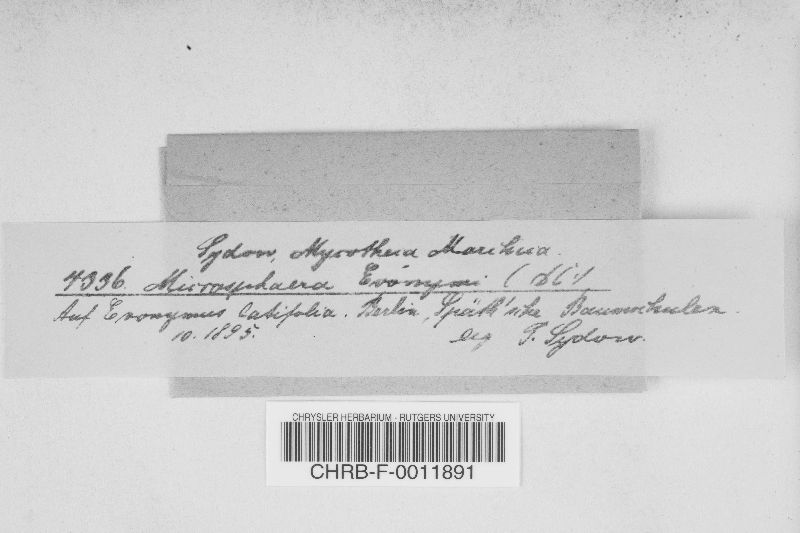 Sydow, Mycotheca Marchica.
4336. Microsphaera Evonymi (DC.)
Auf Evonymus latifolia. Berlin, Späth'sche Baumschulen.
10. 1895. leg P. Sydow.
CHRYSLER HERBARIUM - RUTGERS UNIVERSITY
CHRB-F-0011891